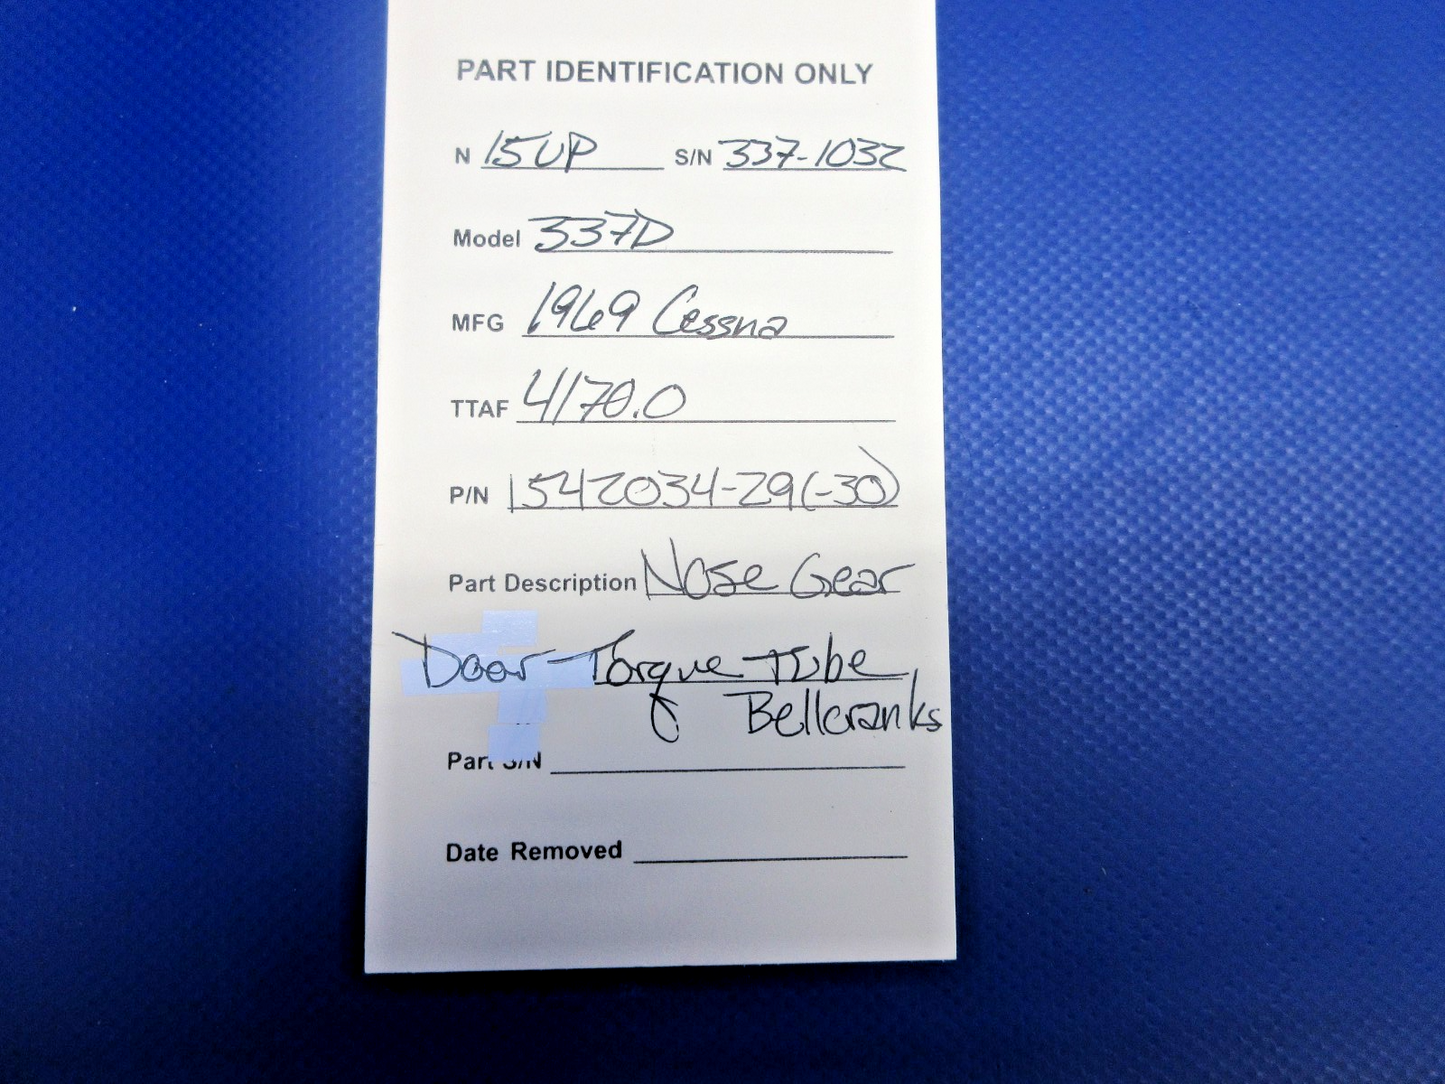 PART IDENTIFICATION ONLY
N 15UP S/N 337-1032
Model 337D
MFG 1969 Cessna
TTAF 4170.0
P/N 1542034-29(-30)
Part Description Nose Gear
Door Torque Tube
Bellcranks
Part S/N
Date Removed